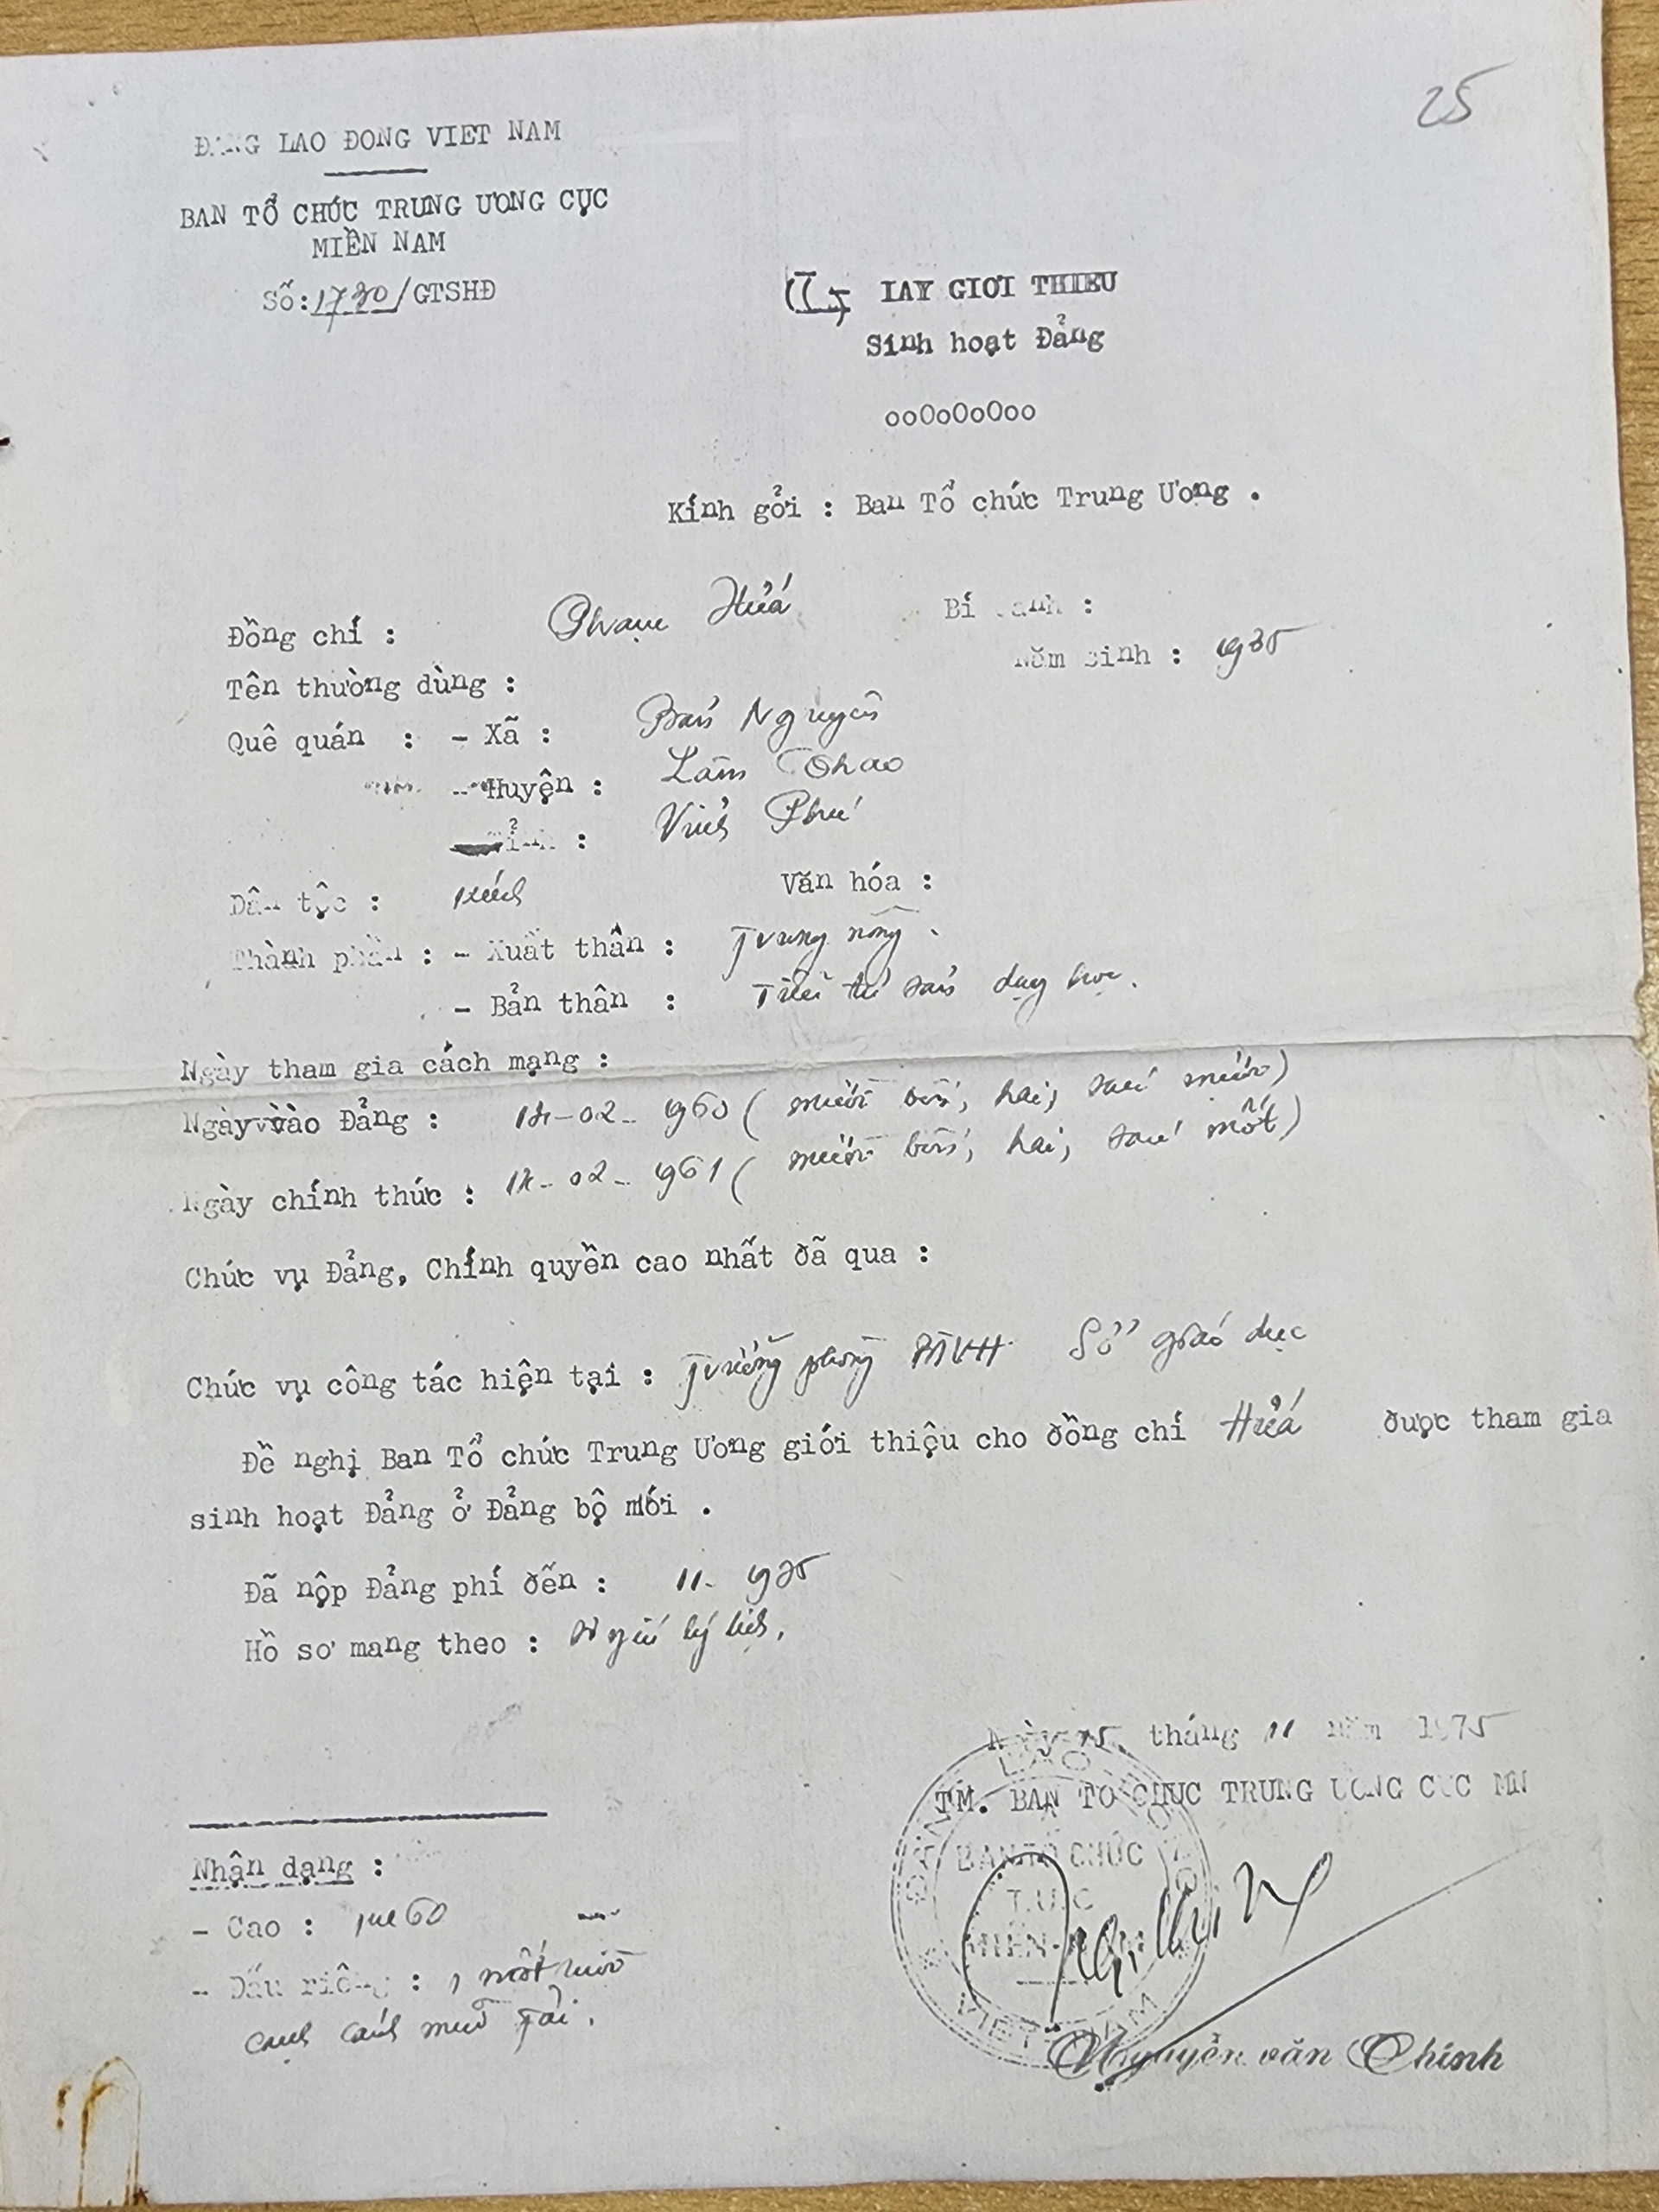 25
ĐẢNG LAO ĐONG VIET NAM
BAN TỔ CHỨC TRUNG ƯƠNG CỤC
MIỀN NAM
Số: 1730/GTSHĐ
IAY GIƠI THIEU
Sinh hoạt Đảng
ooOoOoOoo
Kính gởi : Ban Tổ chức Trung Ương .
Đồng chí : Phạm Hứa
Bí danh :
Tên thường dùng :
Năm sinh : 1935
Quê quán : - Xã : Bản Nguyên
- Huyện : Lâm Thao
Tỉnh : Vĩnh Phú
Dân tộc : kinh
Văn hóa :
Thành phần : - Xuất thân : Trung nông .
- Bản thân : Tiểu tư sản dạy học .
Ngày tham gia cách mạng :
Ngày vào Đảng : 14-02-1960 ( mười bốn, hai, sáu mươi )
Ngày chính thức : 14-02-1961 ( mười bốn, hai, sáu mốt )
Chức vụ Đảng, Chính quyền cao nhất đã qua :
Chức vụ công tác hiện tại : Trưởng phòng BTVH Sở giáo dục
Đề nghị Ban Tổ chức Trung Ương giới thiệu cho đồng chí Hứa được tham gia
sinh hoạt Đảng ở Đảng bộ mới .
Đã nộp Đảng phí đến : 11-1975
Hồ sơ mang theo : lý lịch.
Ngày 15 tháng 11 năm 1975
TM. BAN TO CHUC TRUNG UONG CUC MN
BAN TỔ CHỨC
T.U.C
MIỀN-NAM
LAO ĐỘNG
VIỆT NAM
Nguyễn văn Chính
Nhận dạng :
- Cao : 1m60
- Dấu riêng : 1 nốt ruồi
cạnh cánh mũi phải .